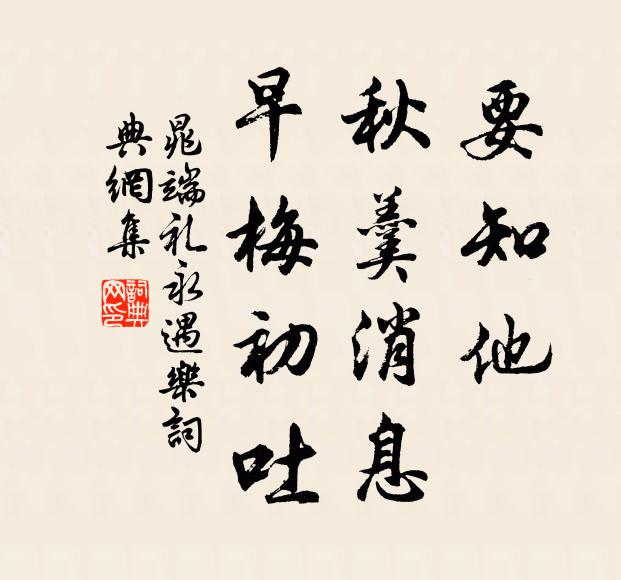 要知他
秋羹消息
早梅初吐
晁端礼永遇樂詞
典網集
詞典
网印